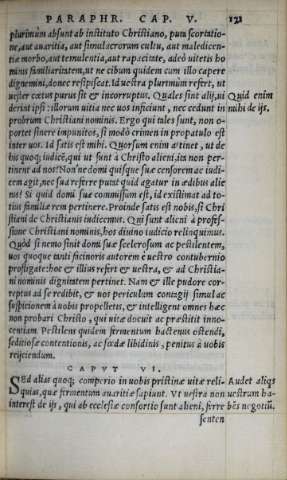 PARAPHR. CAP. V. 131
plurimum absunt ab instituto Christiano, puta scortatio-
ne, aut auaritia, aut simulacrorum cultu, aut maledicen-
tiæ morbo, aut temulentia, aut rapacitate, adeò uitetis ho
minis familiaritatem, ut ne cibum quidem cum illo capere
dignemini, donec resipiscat. Id uestra plurimum refert, ut
uester cœtus purus sit & incorruptus. Quales sint alij, ui Quid enim
derint ipsi: illorum uitia nec uos inficiunt, nec cedunt in mihi de ijs.
probrum Christiani nominis. Ergo qui tales sunt, non o-
portet sinere impunitos, si modò crimen in propatulo est
inter uos. Id satis est mihi. Quorsum enim attinet, ut de
his quoq; iudicē, qui ut sunt à Christo alieni, ita non per-
tinent ad nos? Non'ne domi quisque suæ censorem ac iudi-
cem agit, nec sua referre putat quid agatur in ædibus alie
nis? Si quid domi suæ commissum est, id existimat ad to-
tius familiæ rem pertinere. Proinde satis est nobis, si Chri
stiani de Christianis iudicemus. Qui sunt alieni à profes-
sione Christiani nominis, hos diuino iudicio relinquimus.
Quòd si nemo sinit domi suæ scelerosum ac pestilentem,
uos quoque tanti facinoris autorem è uestro contubernio
profligate: hoc & illius refert & uestra, & ad Christia-
ni nominis dignitatem pertinet. Nam & ille pudore cor-
reptus ad se redibit, & uos periculum contagij simul ac
suspitionem à uobis propelletis, & intelligent omnes hæc
non probari Christo, qui uitæ docuit ac præstitit inno-
centiam. Pestilens quidem fermentum hactenus ostendi,
seditiosæ contentionis, ac fœdæ libidinis, penitus à uobis
reijciendum.
CAPVT VI.
SEd alias quoq; comperio in uobis pristinæ uitæ reli- Audet aliqs
quias, quæ fermentum auaritiæ sapiunt. Vt uestra non uestrum ha-
interest de ijs, qui ab ecclesiæ consortio sunt alieni, ferre bēs negotiū.
senten